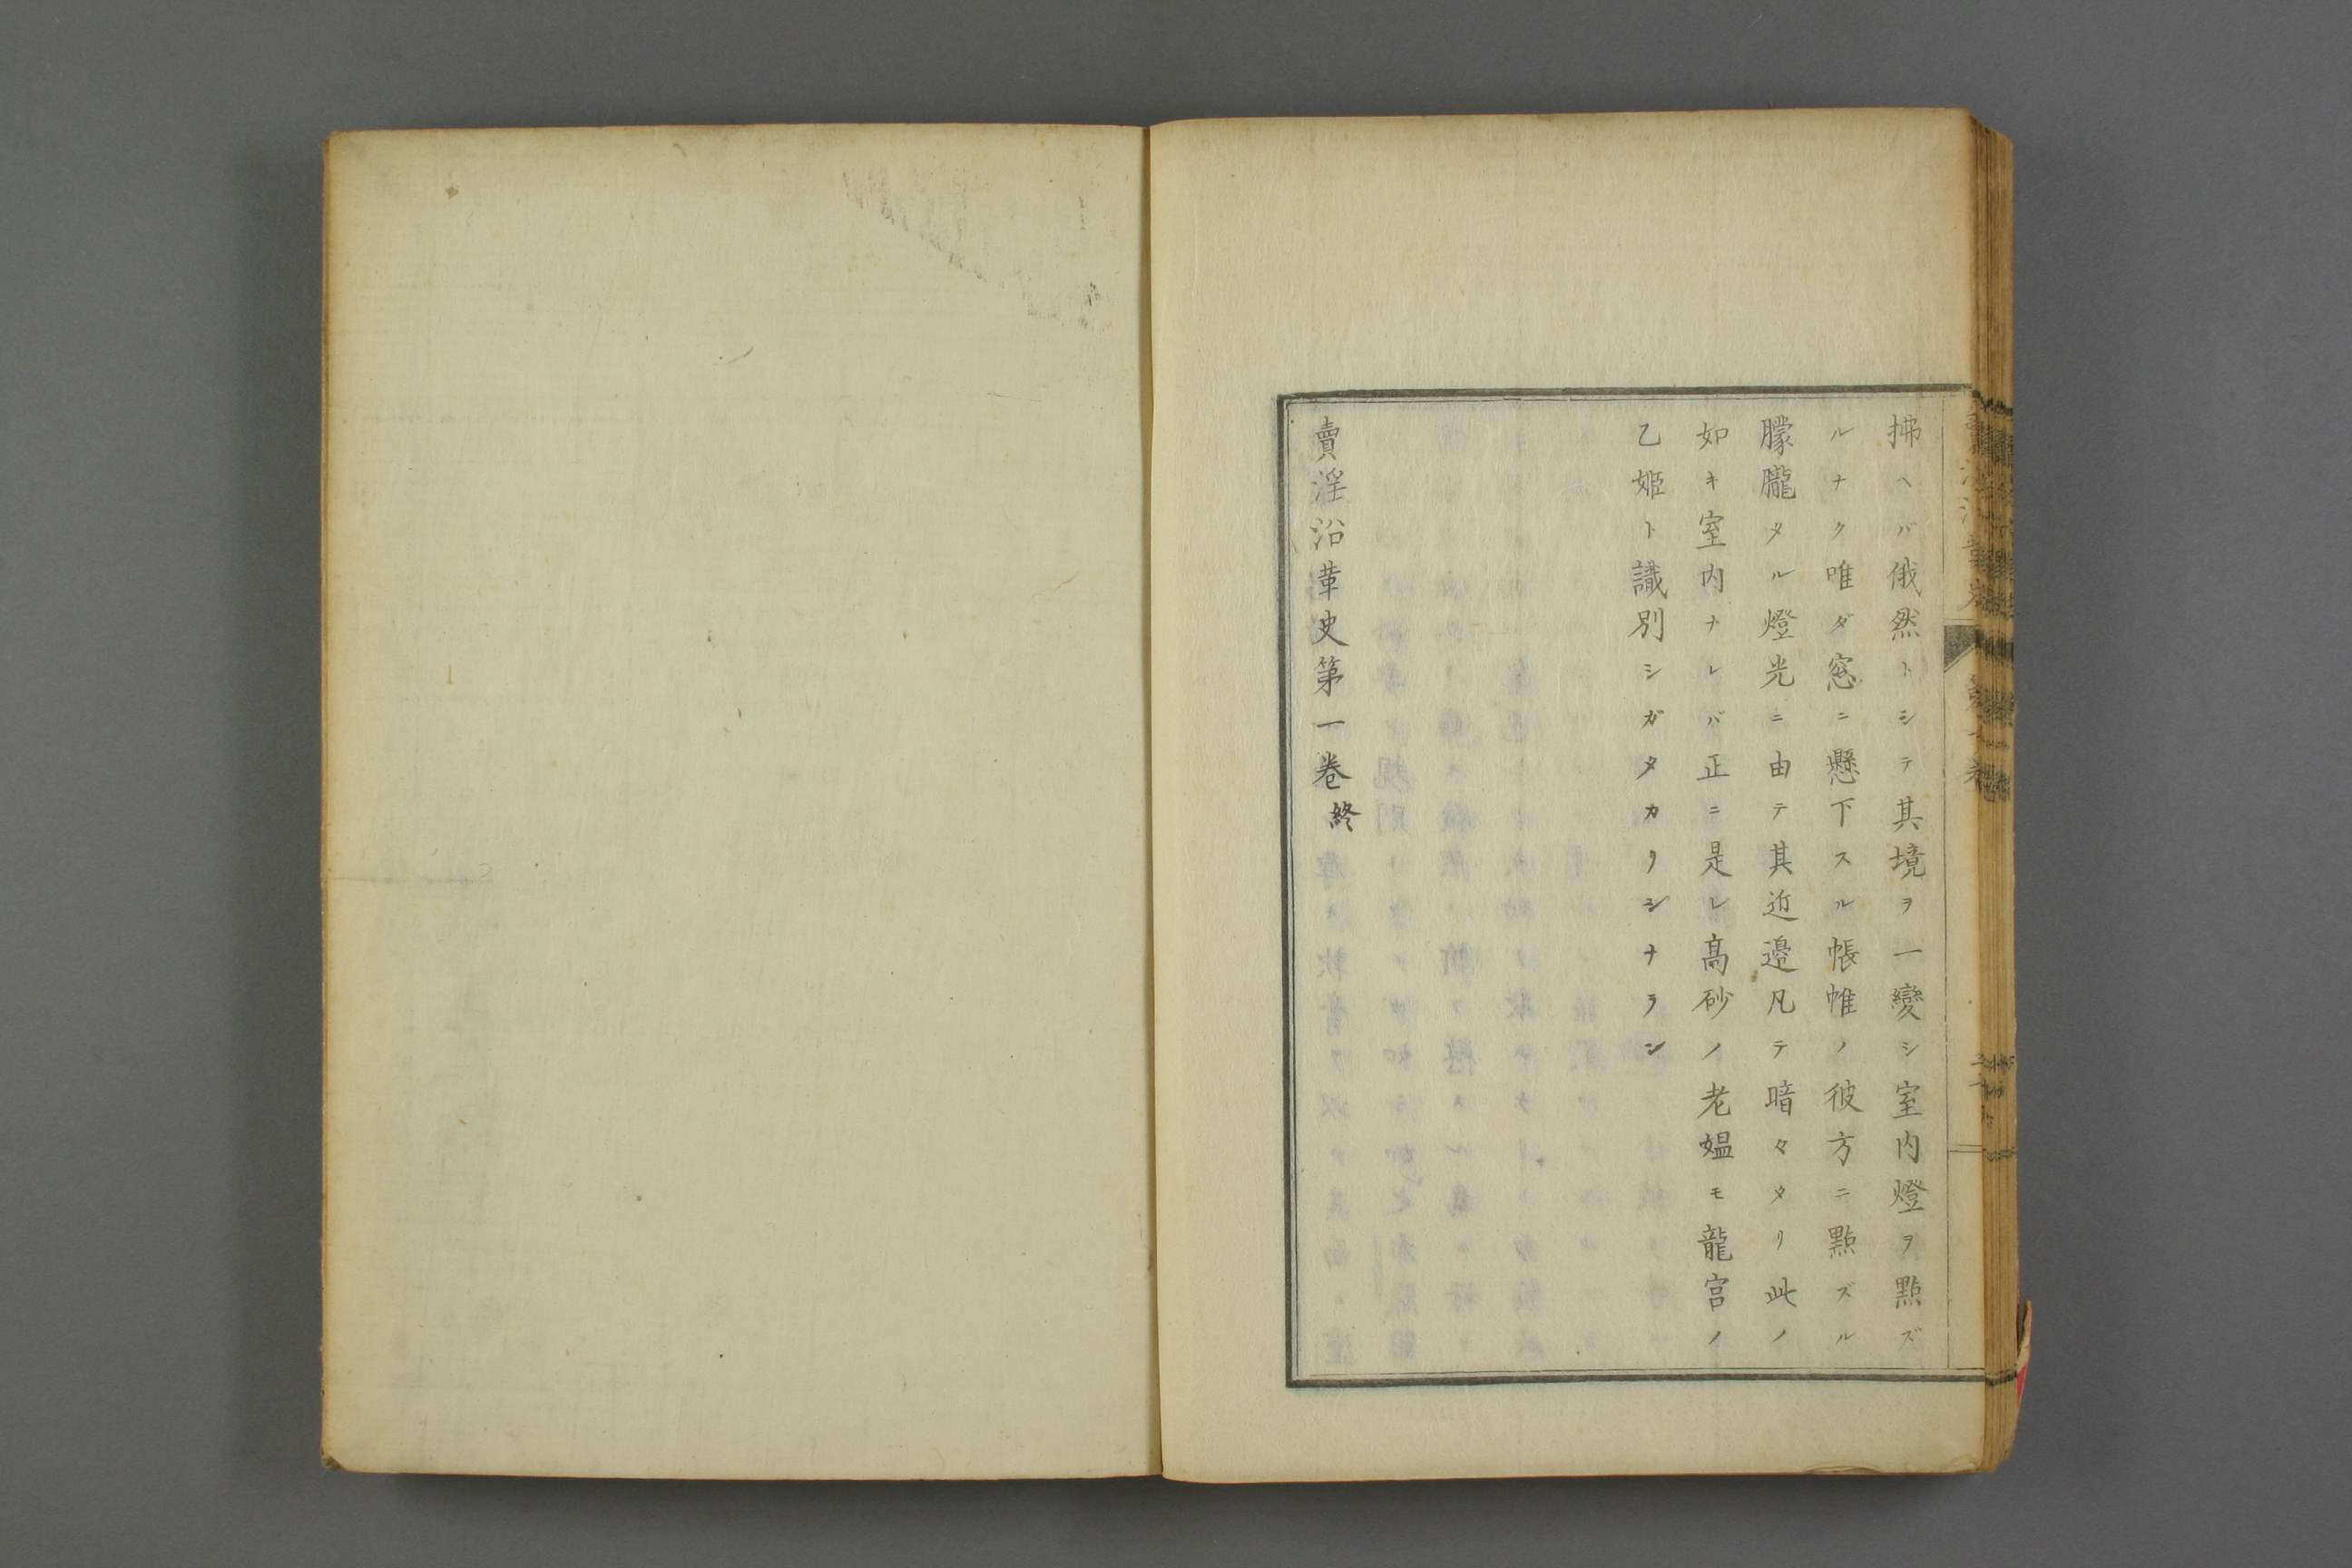 拂ヘバ俄然トシテ其境ヲ一變シ室内燈ヲ點ズ
ルナク唯ダ窓ニ懸下スル帳帷ノ彼方ニ點ズル
朦朧タル燈光ニ由テ其近邊凡テ暗々タリ此ノ
如キ室内ナレバ正ニ是レ髙砂ノ老媼モ龍宮ノ
乙姫ト識別シガタカリシナラン
賣淫沿革史第一巻終